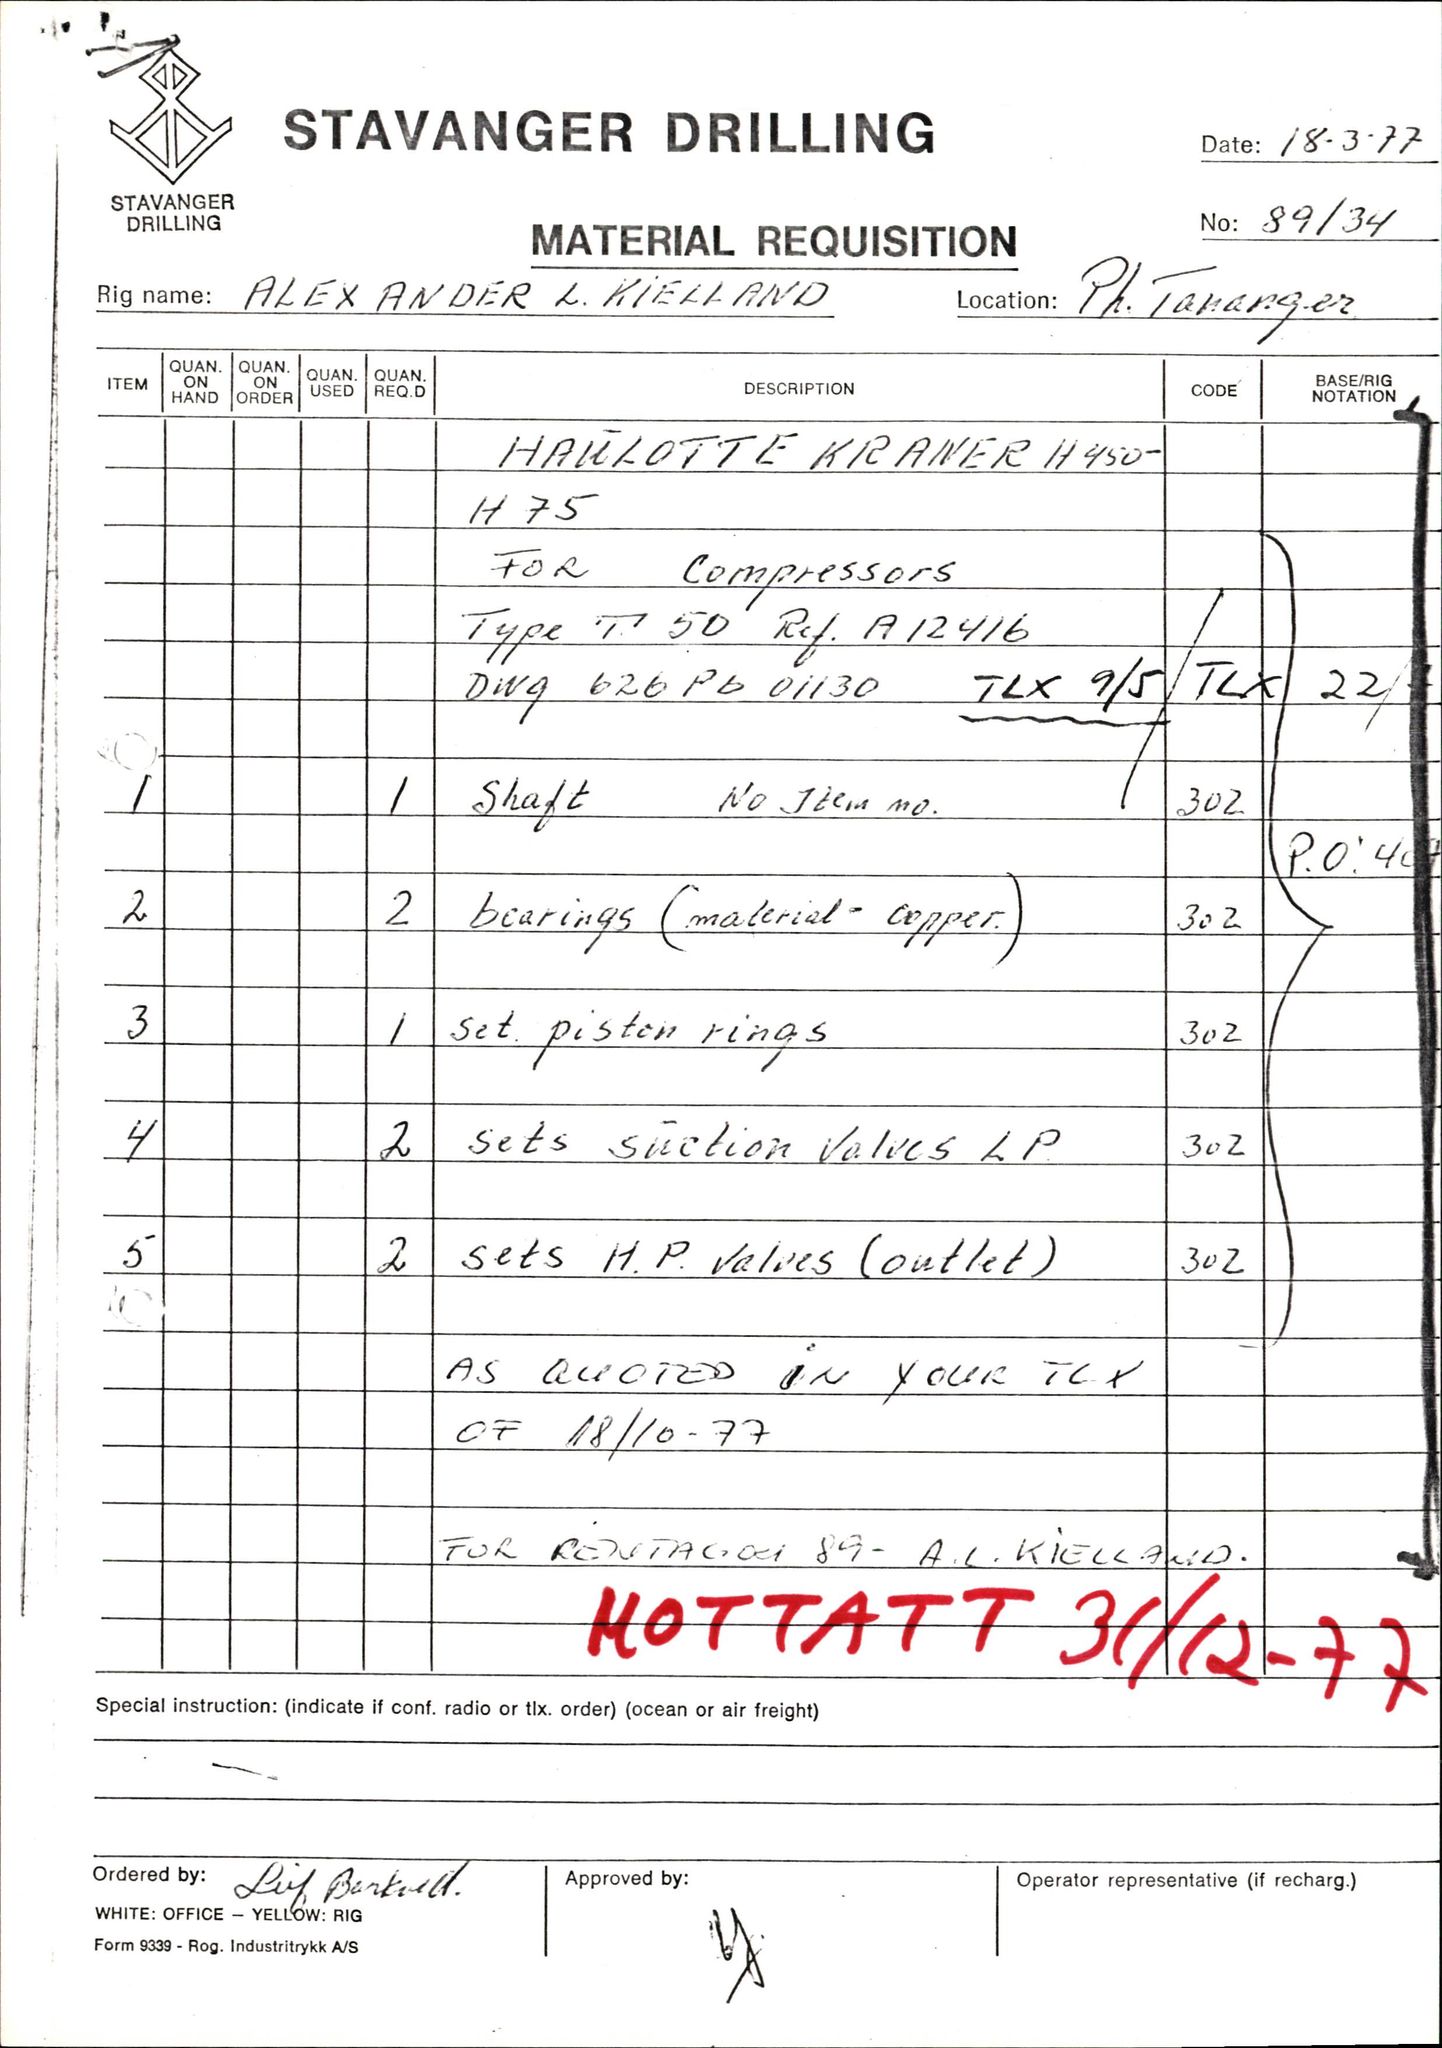 STAVANGER DRILLING
STAVANGER
DRILLING
Date: 18-3-77
No: 89/34
MATERIAL REQUISITION
Rig name: ALEXANDER L. KIELLAND
Location: Ph. Tananger
ITEM QUAN. ON HAND QUAN. ON ORDER QUAN. USED QUAN. REQ.D DESCRIPTION CODE BASE/RIG NOTATION
HAULOTTE KRANER H 450-
H 75
FOR Compressors
Type T 50 Ref. A 12416
DWg 626 Pb 01130 TLX 9/5 / TLX 22/
1 1 Shaft No Item no. 302
P.O:
2 2 bearings (material - copper.) 302
3 1 set. piston rings 302
4 2 sets suction valves LP. 302
5 2 sets H.P. valves (outlet) 302
AS QUOTED IN YOUR TLX
OF 18/10-77
FOR 89- A.L. KIELLAND.
MOTTATT 31/12-77
Special instruction: (indicate if conf. radio or tlx. order) (ocean or air freight)
Ordered by: Leif
Approved by:
Operator representative (if recharg.)
WHITE: OFFICE – YELLOW: RIG
Form 9339 - Rog. Industritrykk A/S